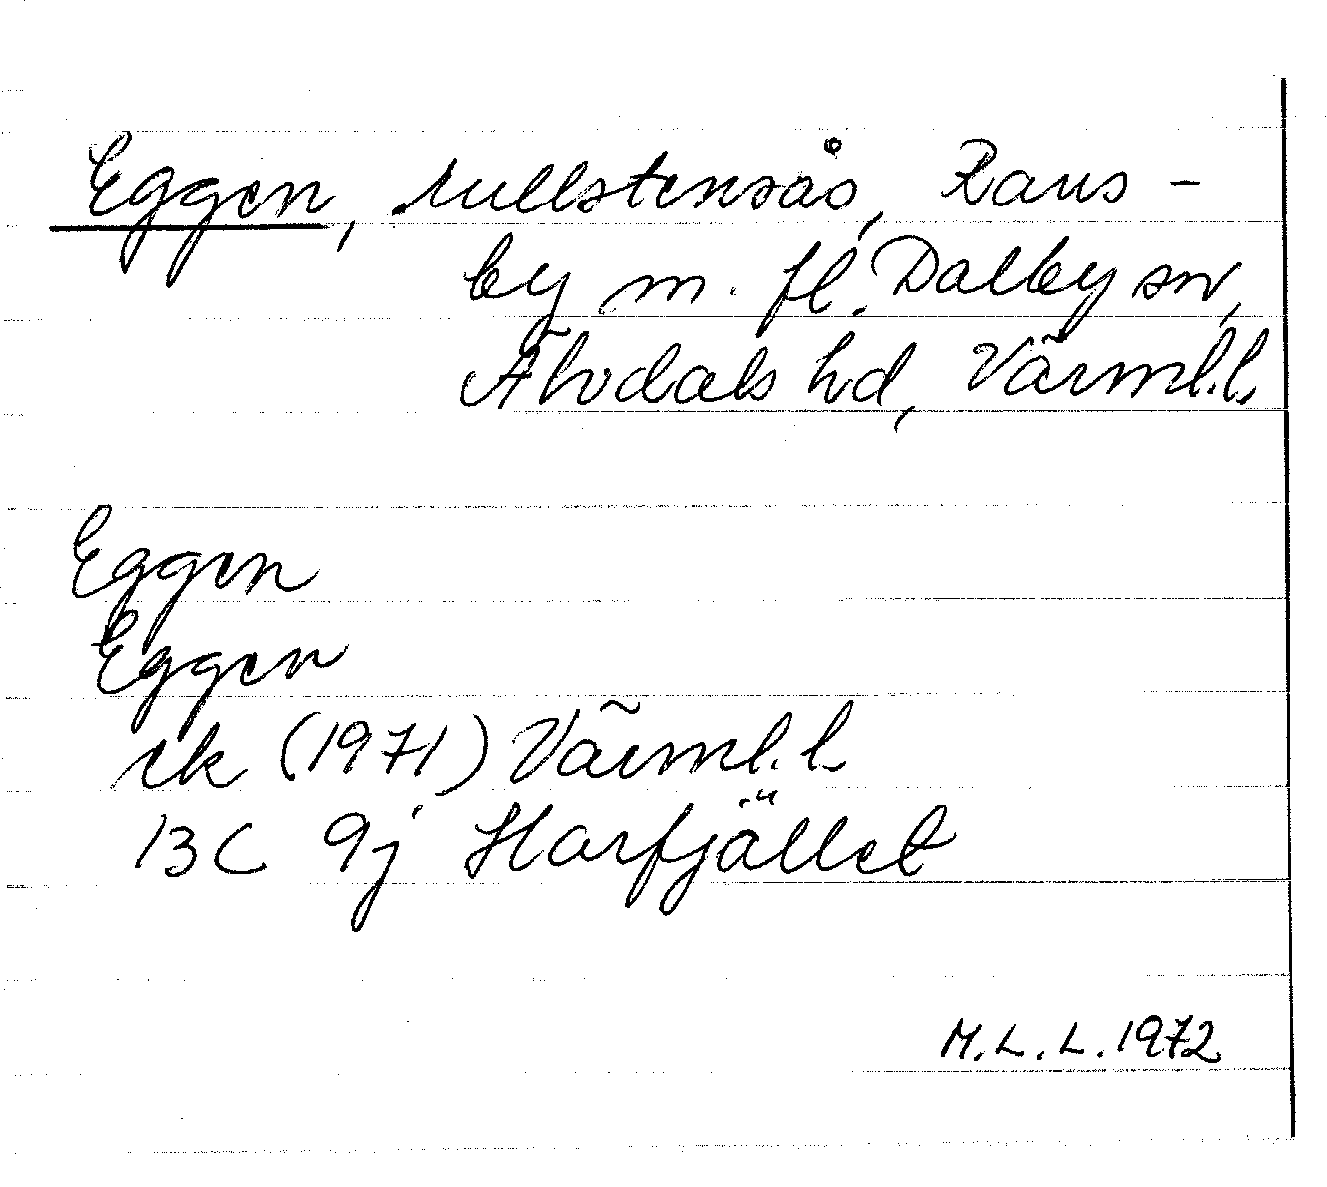 Eggen, rullstensås, Rans-
by m. fl. Dalby sn,
Älvdals hd, Värml.l.
Eggen
Eggen
ek (1971) Värml.l.
13C 9j Harfjället
M.L.L. 1972